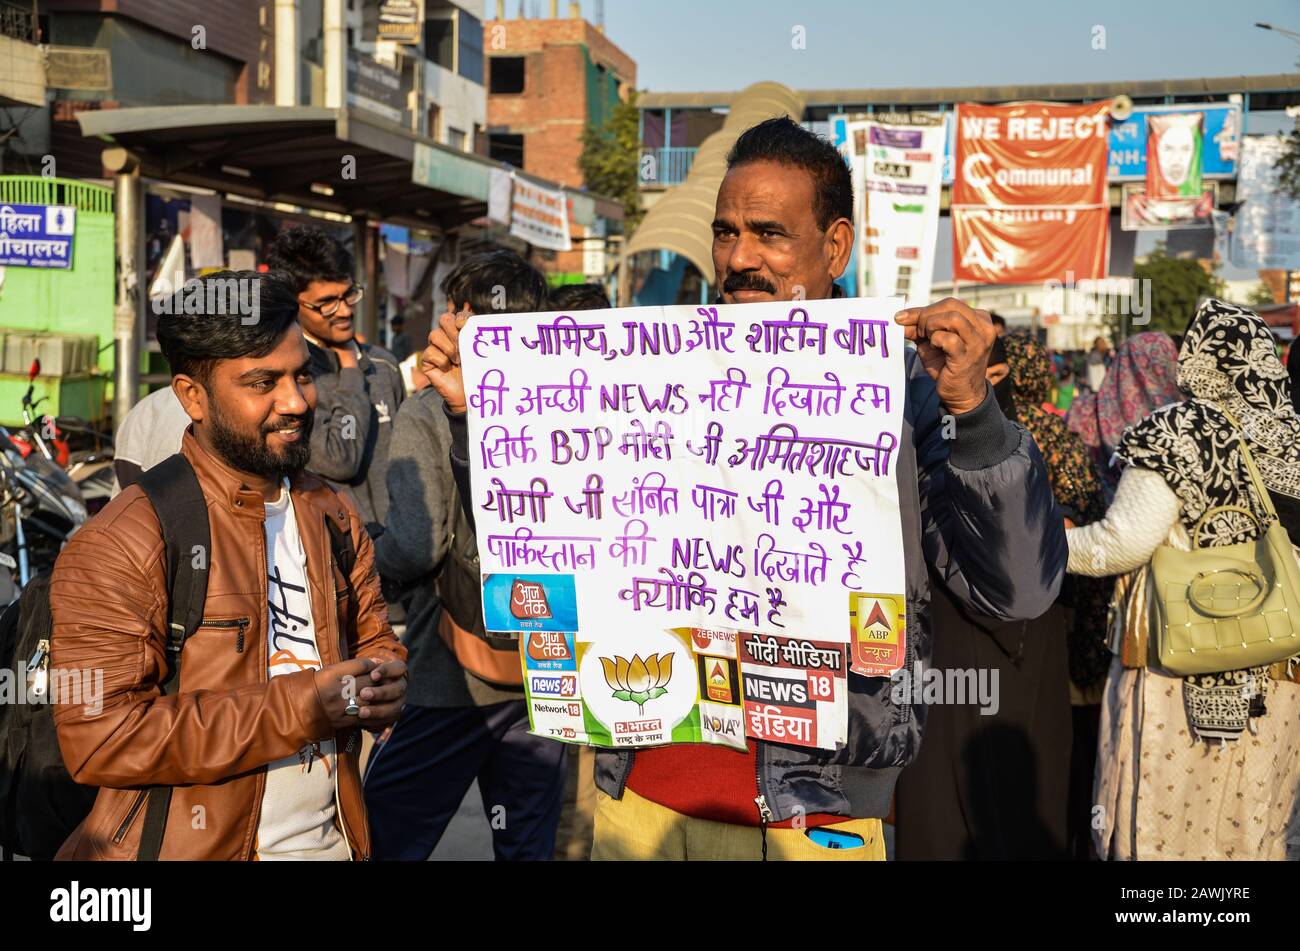 महिला
शौचालय
WE REJECT
Communal
Arbitrary
CAA
NH-
हम जामिय, JNU, और शाहीन बाग
की अच्छी NEWS नही दिखाते हम
सिर्फ BJP मोदी जी अमितशाह जी
योगी जी संबित पात्रा जी और
पाकिस्तान की NEWS दिखाते है
क्योंकि हम है
आज तक
सबसे तेज़
ABP
न्यूज़
आज तक
सबसे तेज़
news 24
Network 18
R.भारत
राष्ट्र के नाम
ZEE NEWS
ABP
INDIA TV
गोदी मीडिया
NEWS 18
इंडिया
alamy
Image ID: 2AWJYRE
www.alamy.com